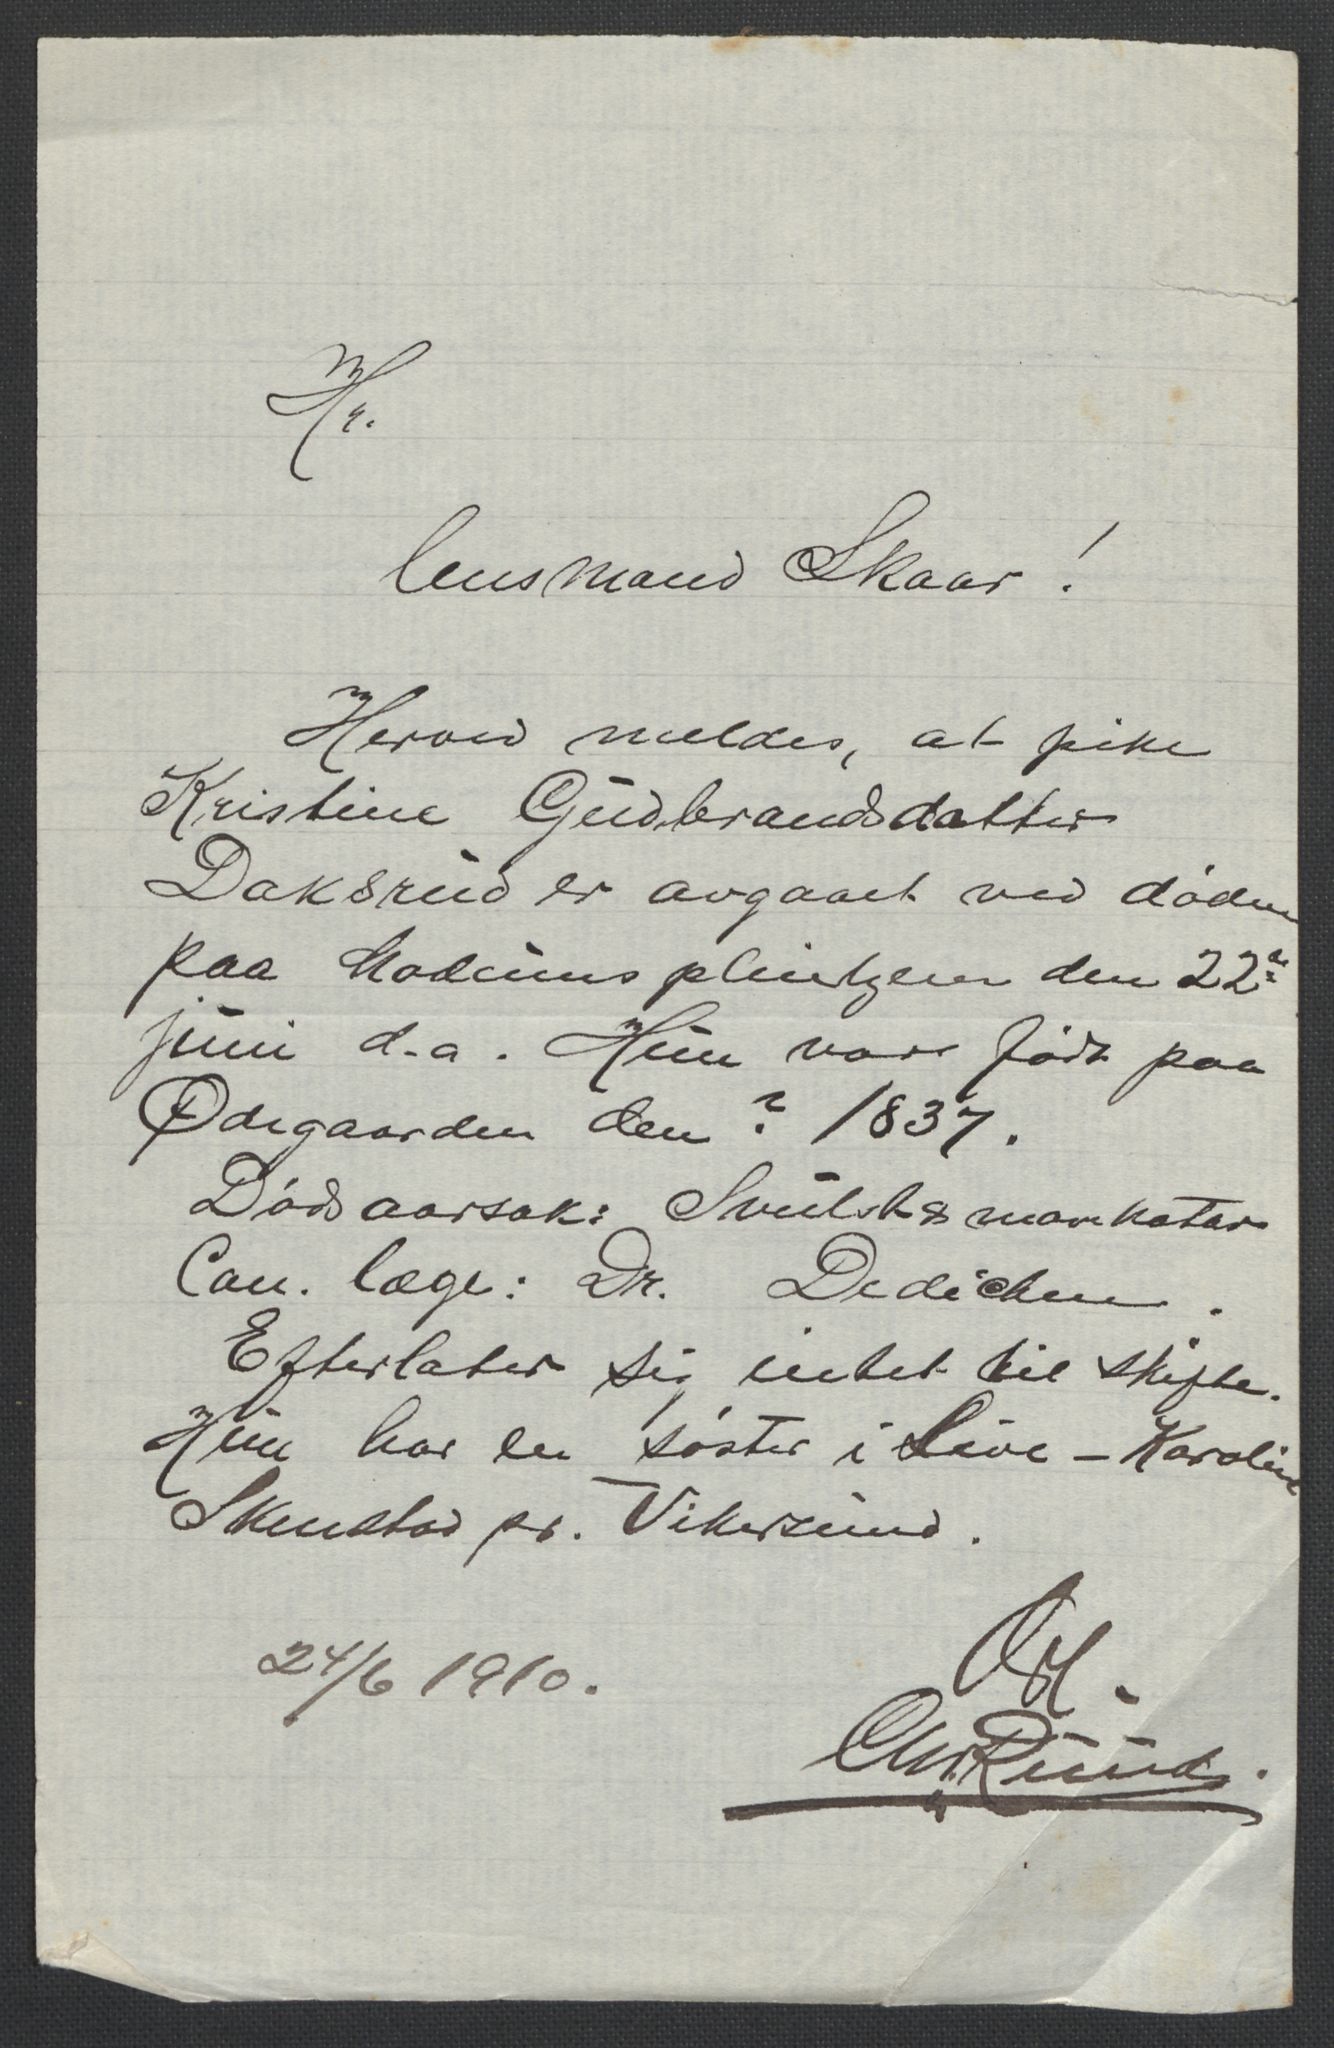 Hr.
lensmand Skaar!
Herved meldes, at pike
Kristine Gudbrandsdatter
Daksrud er avgaaet ved döden
paa Modums pleiehjem den 22.
juni d.a. Hun var född paa
Ødegaarden den ? 1837.
Dödsaarsak: Svulst &
Can. læge: Dr. Dedichen.
Efterlater sig intet til skifte.
Hun har en söster i Live - Karoline
pr. Vikersund.
24/6 1910.
Chr. Ruud.